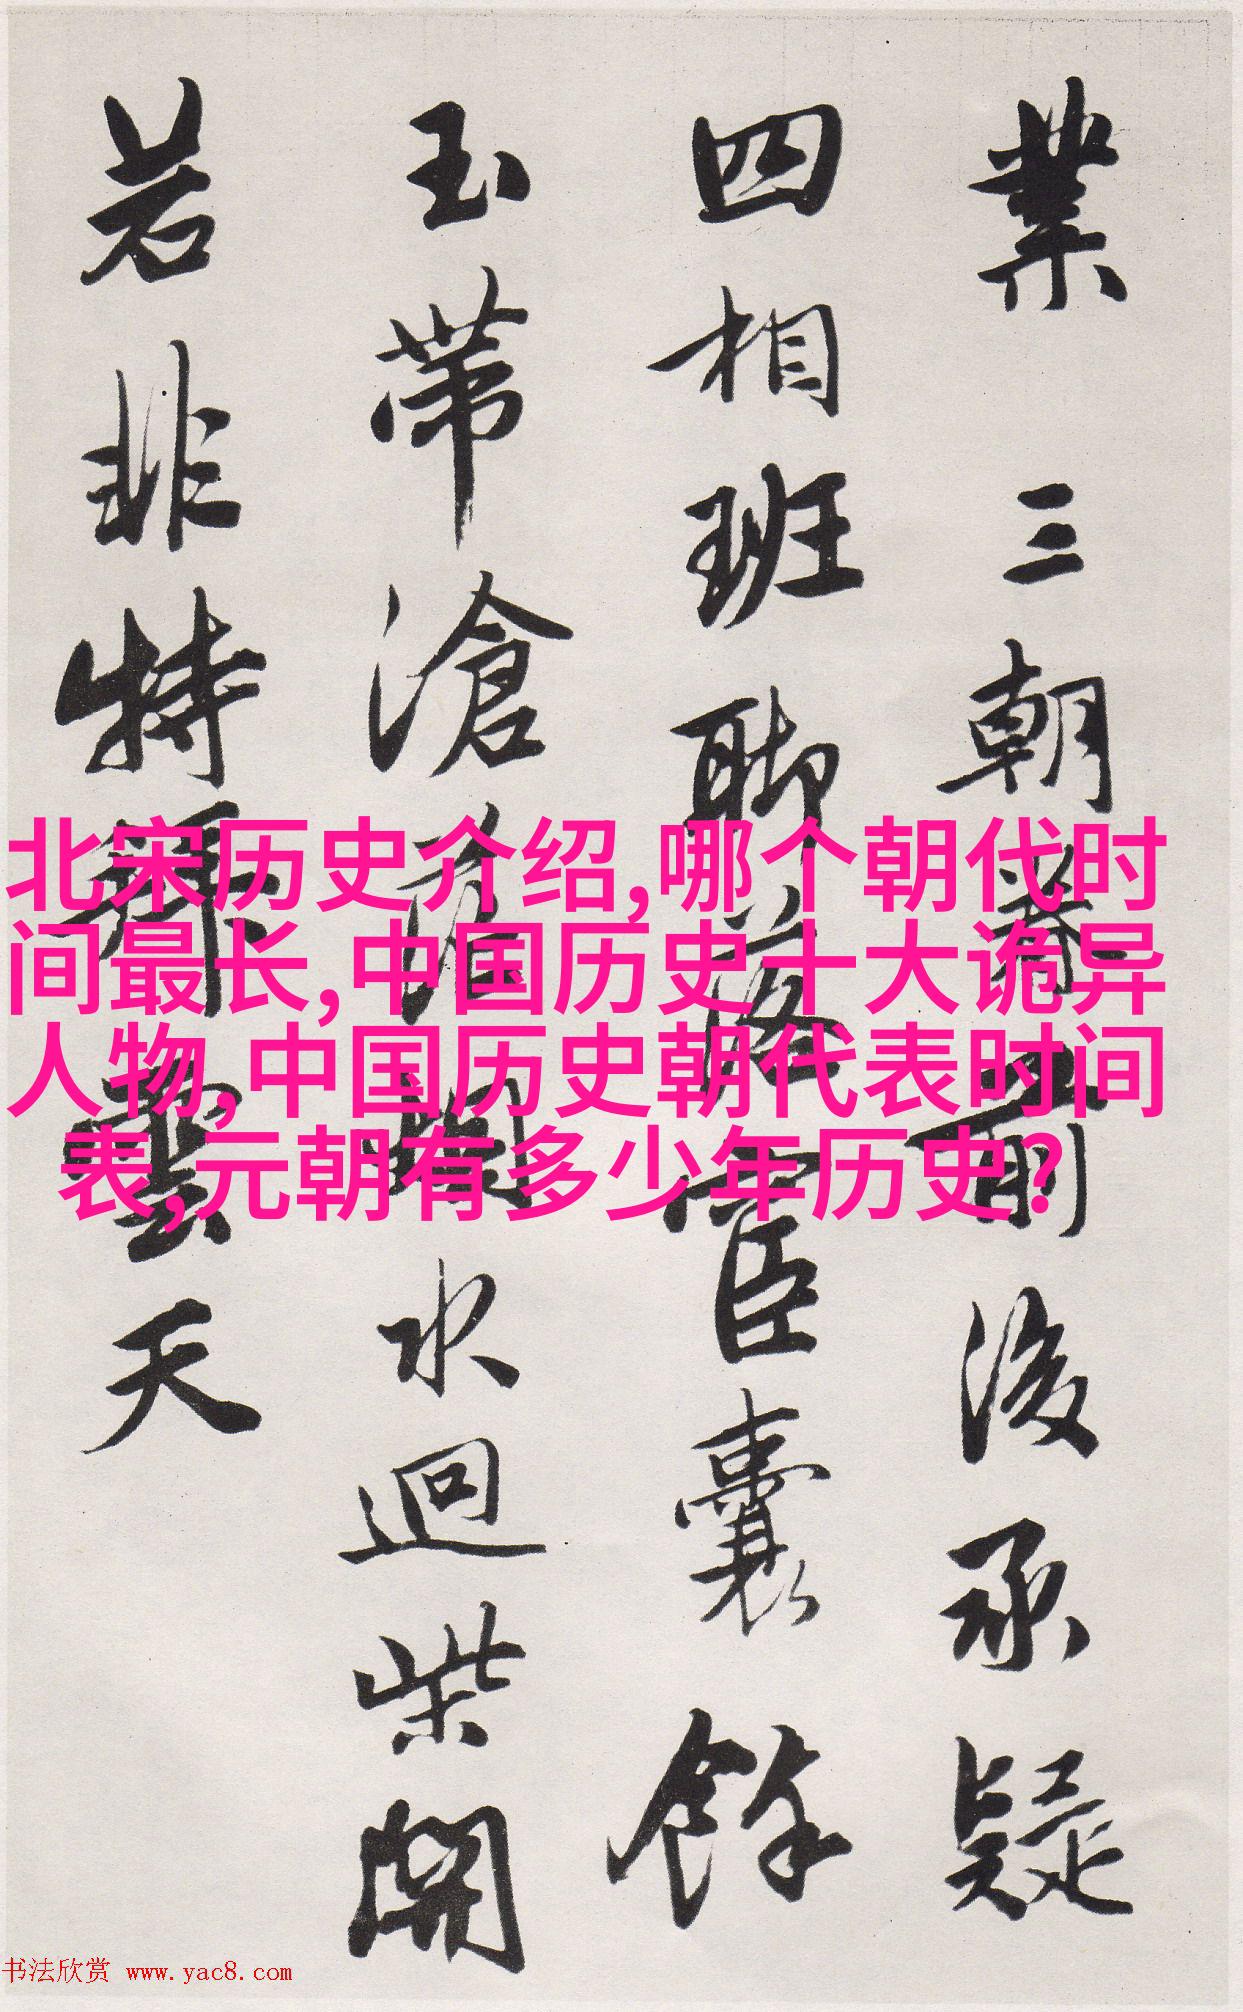 業三朝舊
前後承疑
四相班聊落
臣囊餘
玉帶滄
水迴柴開
若非特
雲天
北宋历史介绍,哪个朝代时
间最长,中国历史十大诡异
人物,中国历史朝代表时间
表,元朝有多少年历史?
书法欣赏 www.yac8.com